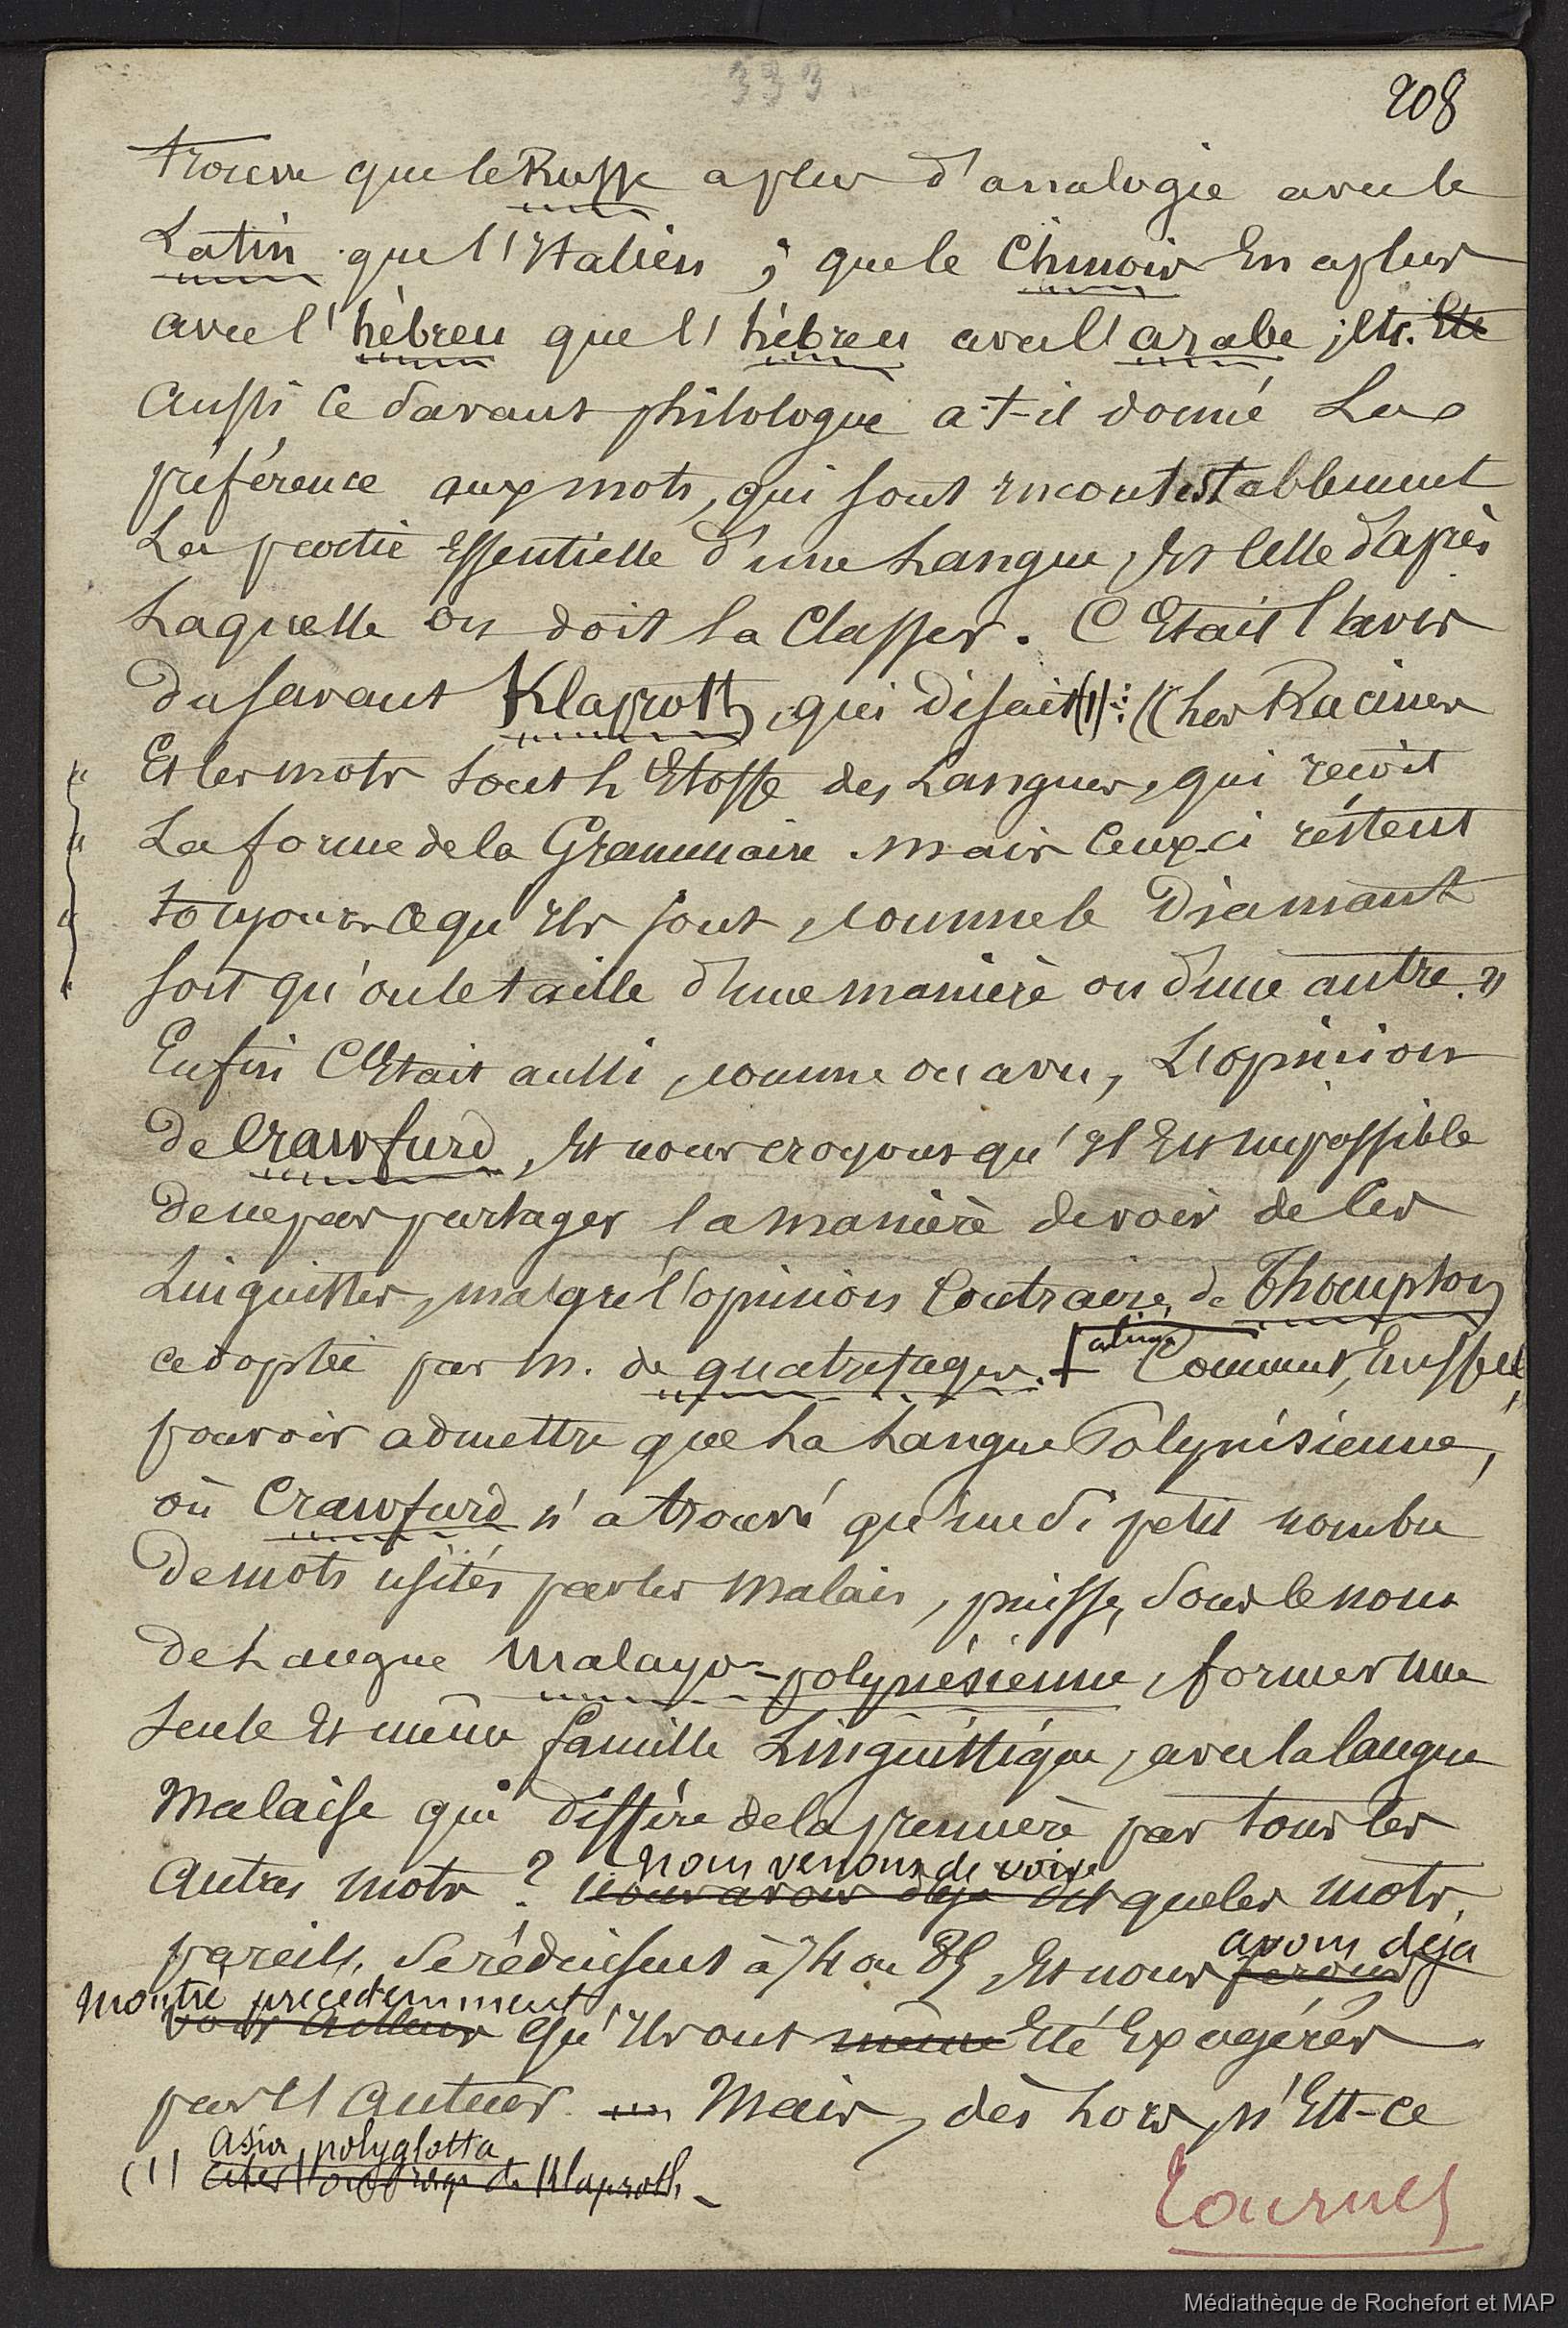 333
208
trouve que le Russe a plus d'analogie avec le
Latin que l'Italien ; que le Chinois En a plus
avec l'hébreu que l'hébreu avec l'arabe ; Etc. Etc
Aussi ce savant philologue a-t-il donné La
préférence aux mots, qui sont incontestablement
La partie Essentielle d'une Langue, Et celle d'après
Laquelle on doit la Classer. C'Etait l'avis
du savant Klaproth, qui disait (1) : « Les Racines
Et les mots sont L'Etoffe des Langues, qui reçoit
La forme de la Grammaire. Mais Ceux-ci restent
toujours ce qu'Ils sont, comme le Diamant
soit qu'on le taille d'une manière ou d'une autre. »
Enfin C'Etait aussi, comme on a vu, L'opinion
de Crawfurd, Et nous croyons qu'Il Est impossible
de ne pas partager la manière de voir de Ces
Linguistes, malgré l'opinion Contraire, de Thompson
adoptée par M. de quatrefages. + Comment, En effet,
pouvoir admettre que La Langue Polynésienne,
où Crawfurd n'a trouvé qu'un si petit nombre
de mots usités par les Malais, puisse, sous le nom
de Langue Malayo-polynésienne, former une
seule Et même famille Linguistique, avec la langue
Malaise qui diffère de la première par tous les
Autres mots ? Nous venons de voir
nous avons déjà dit que les mots
pareils, se réduisent à 74 ou 85, Et nous ferons avons déjà
montré précédemment
voir ailleurs qu'Ils ont même Eté Exagérés
par l'Auteur. Mais, dès Lors, n'Est-ce
Asia polyglotta
(1) citer l'ouvrage de Klaproth.
Tournez
Médiathèque de Rochefort et MAP